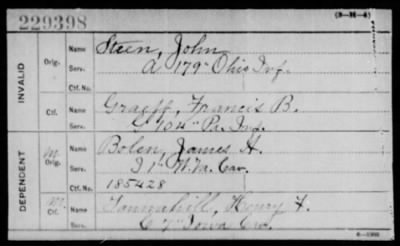 229398
(3-M-4)
INVALID
Orig.
Name Steen, John
Serv. A 179" Ohio Inf.
Ctf. No.
Ctf.
Name Graeff, Francis B.
Serv. G 104" Pa. Inf.
DEPENDENT
M Orig.
Name Bolen, James H.
Serv. I 1" W.Va. Cav.
Ctf. No. 185428
M Ctf.
Name Tannahill, Henry F.
Serv. C 7" Iowa Cav.